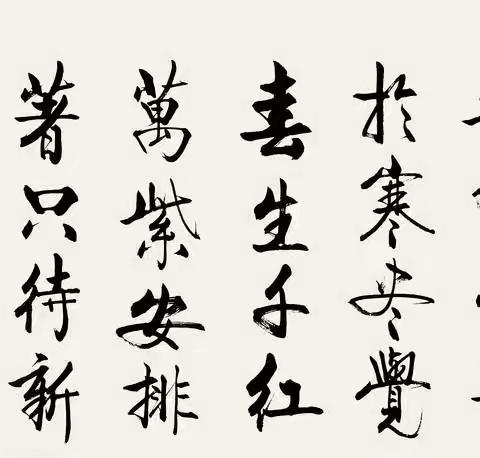 於寒尽覺
春生千红
萬紫安排
著只待新